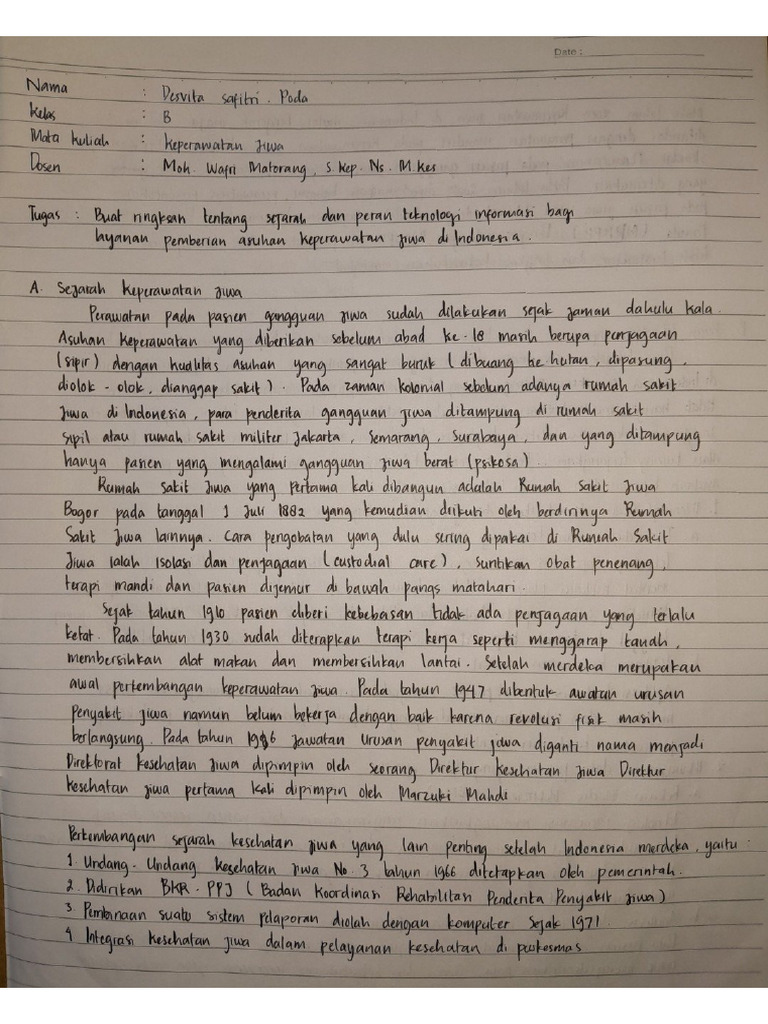 Date :
Nama : Desvita Safitri. Poda
Kelas : B
Mata kuliah : Keperawatan Jiwa
Dosen : Moh. Wafri Matorang, S.Kep. Ns. M.Kes
Tugas : Buat ringksan tentang sejarah dan peran teknologi informasi bagi
layanan pemberian asuhan keperawatan Jiwa di Indonesia.
A. Sejarah Keperawatan Jiwa
Perawatan pada pasien gangguan Jiwa sudah dilakukan sejak Jaman dahulu kala.
Asuhan keperawatan yang diberikan sebelum abad ke-18 masih berupa penjagaan
(sipir) dengan kualitas asuhan yang sangat buruk (dibuang ke hutan, dipasung,
diolok-olok, dianggap sakit). Pada zaman kolonial sebelum adanya rumah sakit
Jiwa di Indonesia, para penderita gangguan Jiwa ditampung di rumah sakit
sipil atau rumah sakit militer Jakarta, Semarang, Surabaya, dan yang ditampung
hanya pasien yang mengalami gangguan jiwa berat (psikosa)
Rumah sakit Jiwa yang pertama kali dibangun adalah Rumah Sakit Jiwa
Bogor pada tanggal 1 Juli 1882 yang kemudian diikuti oleh berdirinya Rumah
Sakit Jiwa lainnya. Cara pengobatan yang dulu sering dipakai di Rumah Sakit
Jiwa ialah isolasi dan penjagaan (custodial care), suntikan obat penenang,
terapi mandi dan pasien dijemur di bawah pangs matahari.
Sejak tahun 1910 pasien diberi kebebasan tidak ada penjagaan yang terlalu
ketat. Pada tahun 1930 sudah diterapkan terapi kerja seperti menggarap tanah,
membersihkan alat makan dan membersihkan lantai. Setelah merdeka merupakan
awal perkembangan keperawatan Jiwa. Pada tahun 1947 dibentuk awatan urusan
penyakit jiwa namun belum bekerja dengan baik karena revolusi fisik masih
berlangsung. Pada tahun 1966 Jawatan Urusan penyakit jiwa diganti nama menjadi
Direktorat kesehatan Jiwa dipimpin oleh seorang Direktur kesehatan Jiwa Direktur
kesehatan jiwa pertama kali dipimpin oleh Marzuki Mahdi
Perkembangan sejarah kesehatan Jiwa yang lain penting setelah Indonesia merdeka, yaitu :
1. Undang-Undang Kesehatan Jiwa No. 3 tahun 1966 ditetapkan oleh pemerintah.
2. Didirikan BKR-PPJ (Badan Koordinasi Rehabilitasi Penderita Penyakit Jiwa)
3. Pembinaan suatu sistem pelaporan diolah dengan komputer sejak 1971.
4 Integrasi kesehatan jiwa dalam pelayanan kesehatan di puskesmas